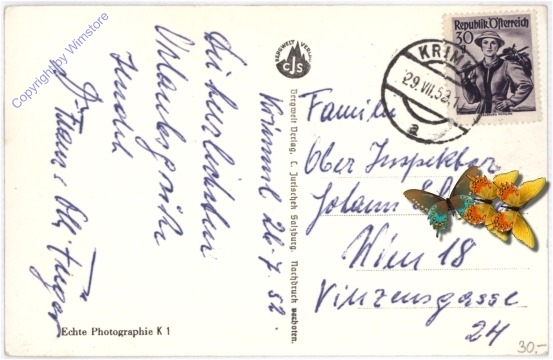 Copyright by Wimstore
Krimml 26.7.52.
Die herzlichsten
Urlaubsgrüße
sendet
Echte Photographie K 1
BERGWELT VERLAG
CJS
Bergwelt Verlag, C. Jurischek Salzburg. Nachdruck verboten.
Republik Österreich
30
KRIML
29.VII.52
a
Familie
Ober Inspektor
Johann
Wien 18
Vinzensgasse
24
30.-